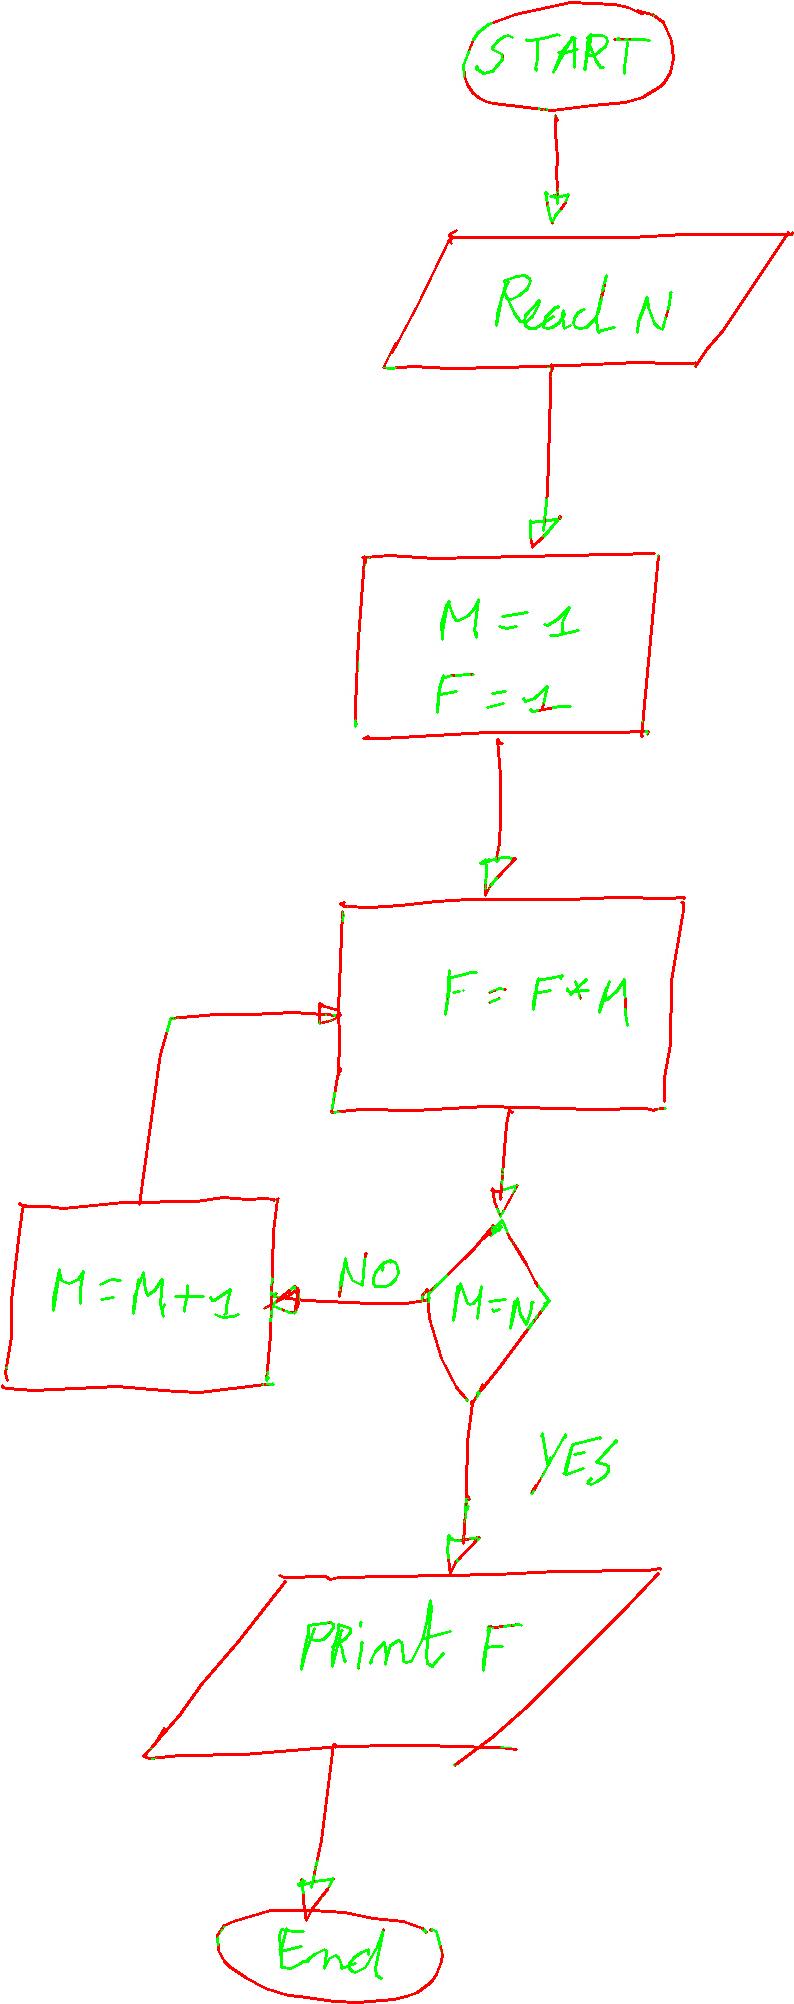 START
Read N
M = 1
F = 1
F = F * M
M = N
NO
M = M + 1
YES
PRint F
End